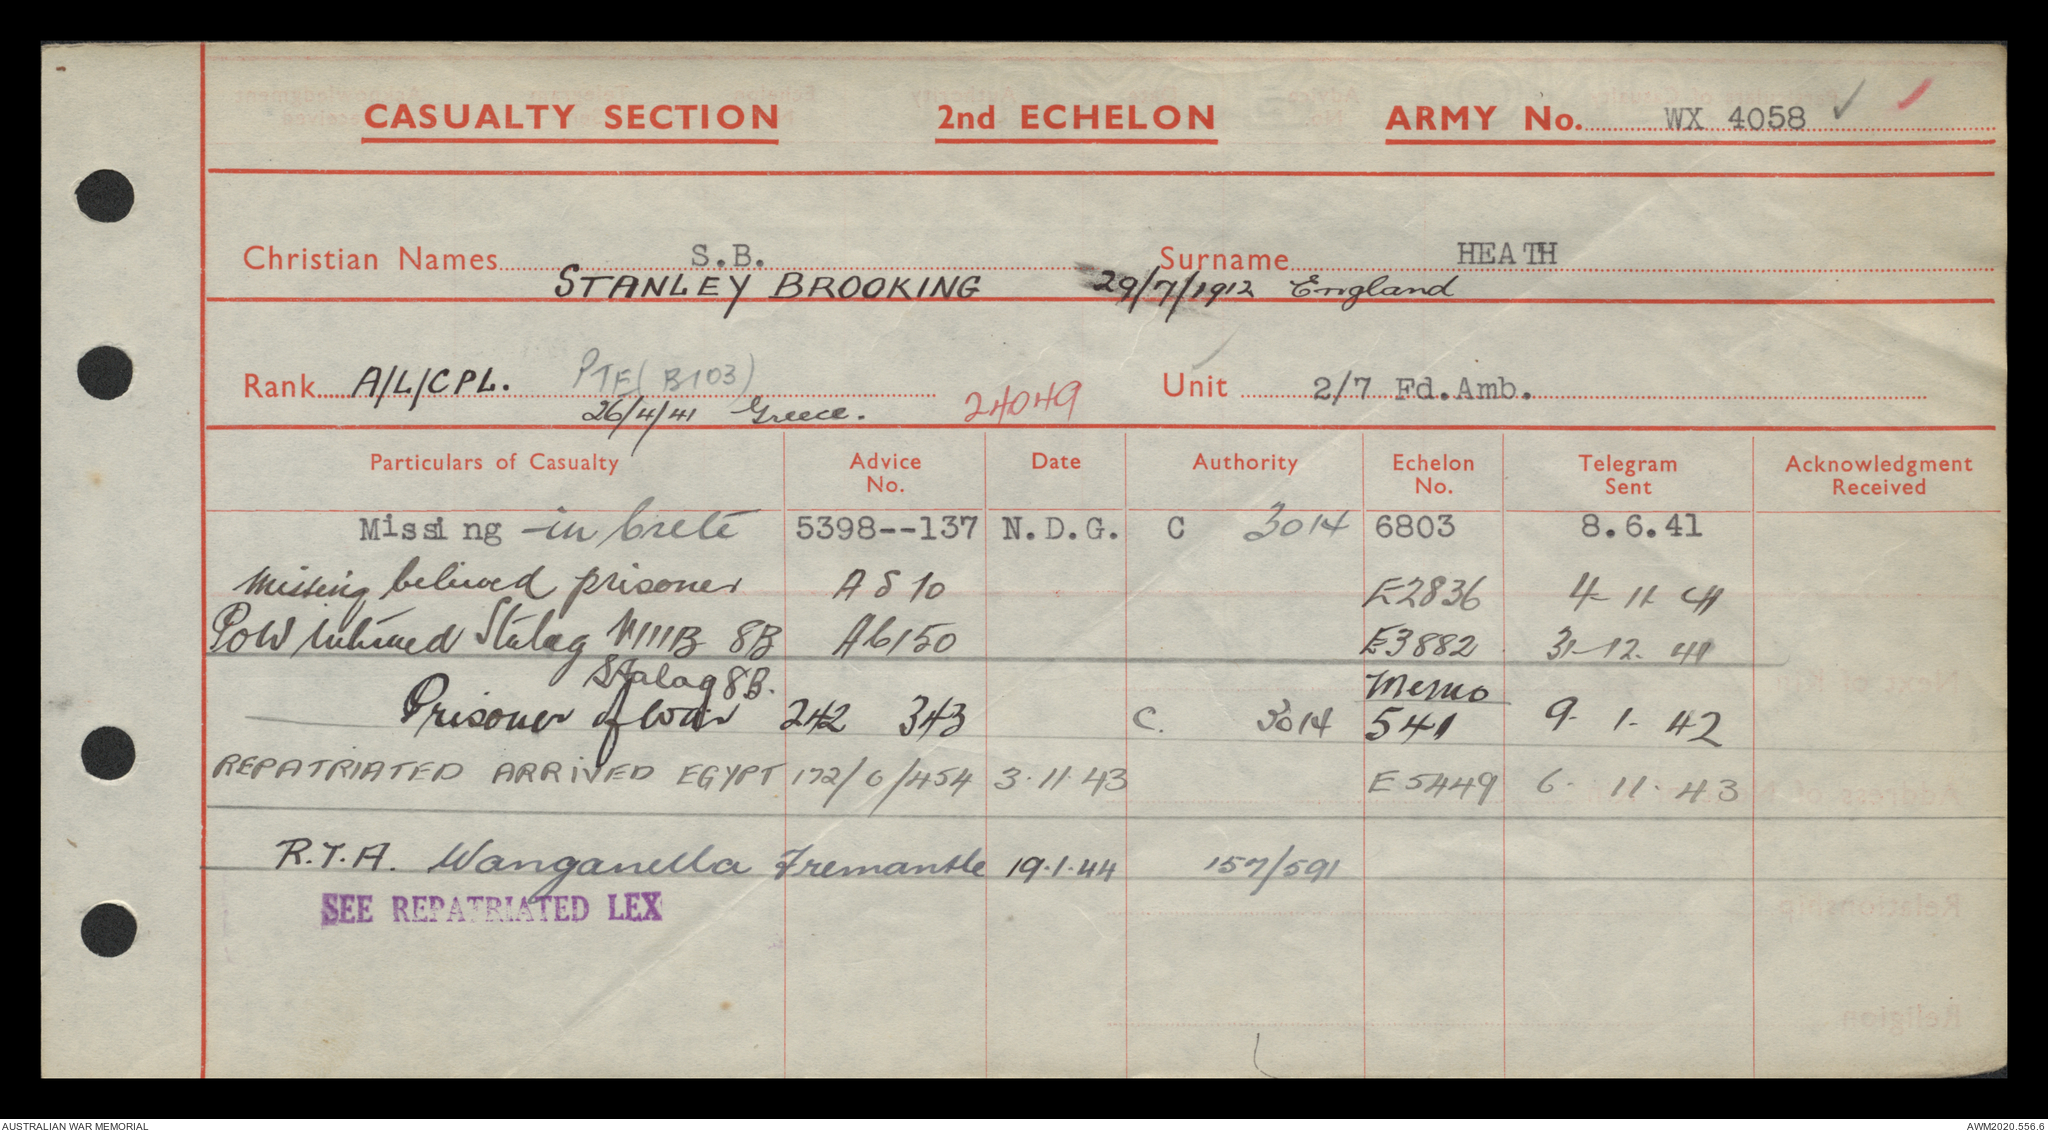 CASUALTY SECTION 2nd ECHELON ARMY No. WX 4058
Christian Names S.B. Surname HEATH
STANLEY BROOKING 29/7/1912 England
Rank A/L/CPL. PTE (B103) Unit 2/7 Fd.Amb.
26/4/41 Greece. 24049
Particulars of Casualty Advice No. Date Authority Echelon No. Telegram Sent Acknowledgment Received
Missing in Crete 5398--137 N.D.G. C 3014 6803 8.6.41
Missing believed prisoner A 510 E2836 4- 11- 41
PoW interned Stalag VIIIB 8B A6150 E3882 31-12. 41
Stalag 8B. Memo
Prisoner of War 242 343 C. 3014 541 9. 1. 42
REPATRIATED ARRIVED EGYPT 172/0/454 3.11.43 E5449 6. 11. 43
R.T.A. Wanganella Fremantle 19.1.44 157/591
SEE REPATRIATED LEX
AUSTRALIAN WAR MEMORIAL AWM2020.556.6